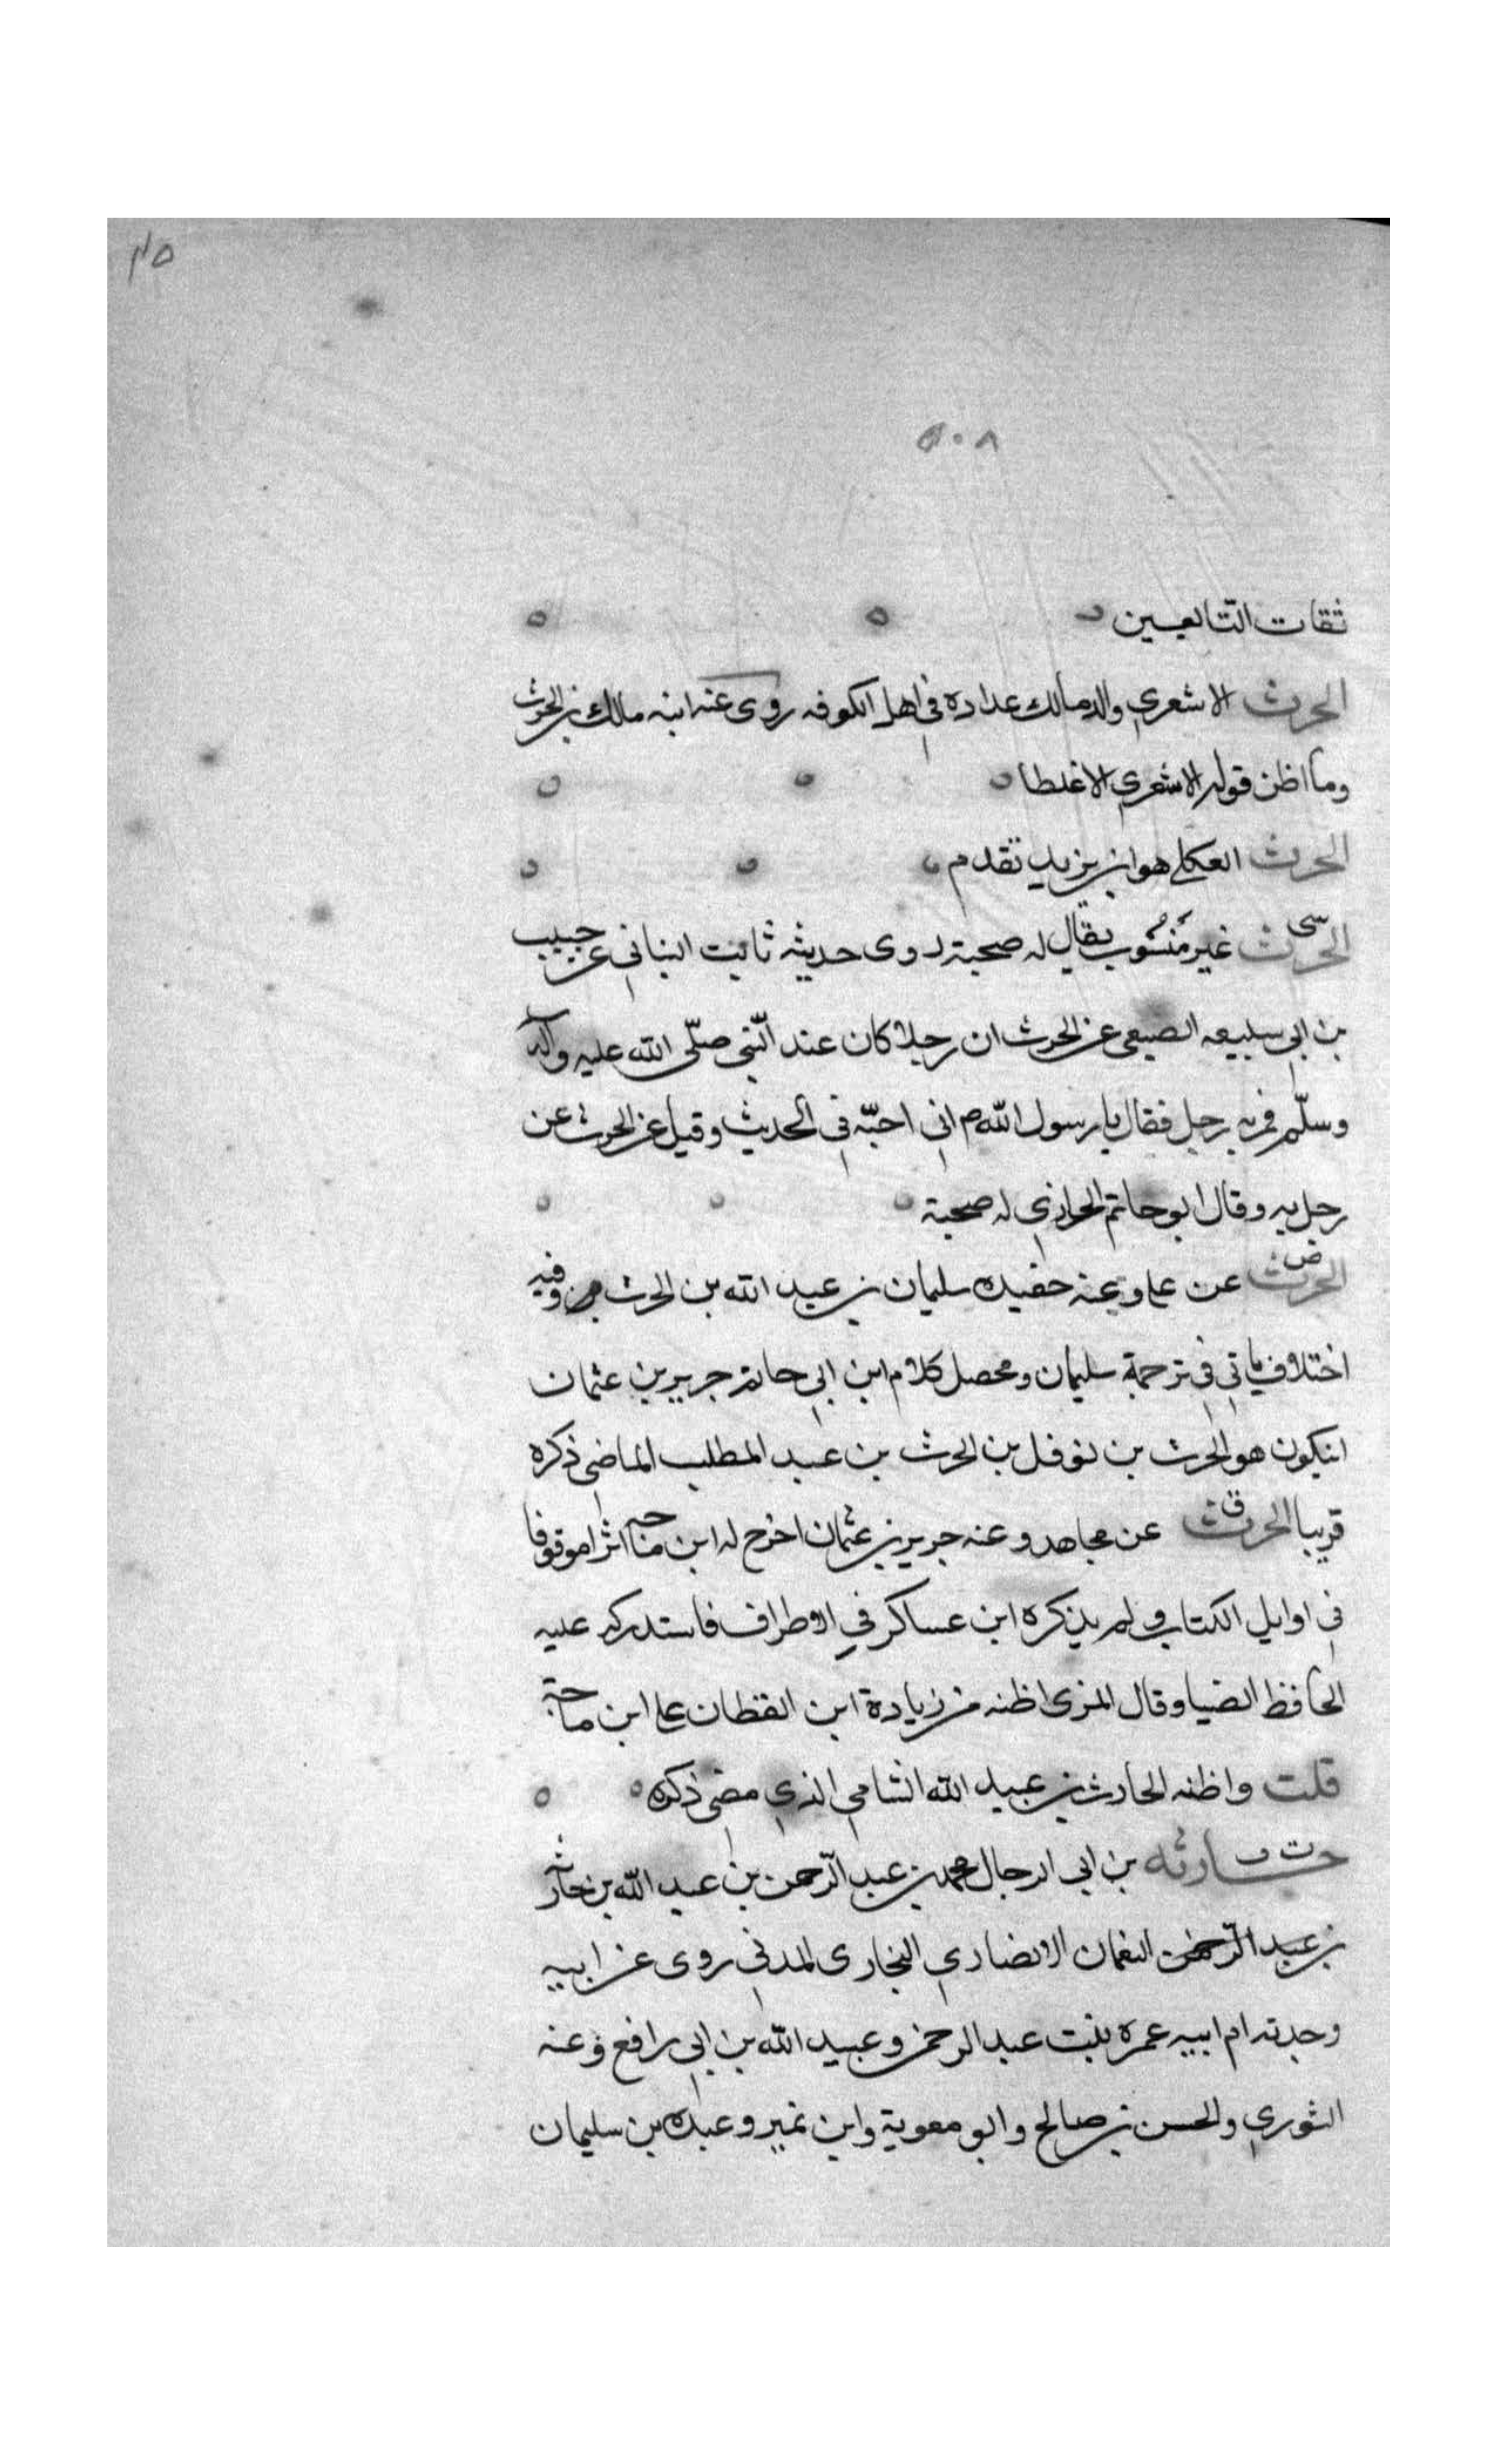 ٥٠٨
ثقات التّابعين
الحرث الاشعري والد مالك عداده في اهل الكوفه روى عنه ابنه مالك بن الحرث
وما اظن قوله الاشعري الا غلطا
الحرث العكلي هو ابن يزيد تقدم
الحرث سى غير مَنسُوب يقال له صحبة روى حديثه ثابت البناني عن حبيب
بن ابي سبيعه الضبعي عن الحرث ان رجلا كان عند النّبي صلّى الله عليه وآله
وسلّم فمر به رجل فقال يا رسول اللهم اني احبّه في الحديث وقيل عن الحرث عن
رجل به وقال ابو حاتم الحرازي له صحبة
الحرث ض عن علي وعنه حفيده سليمان بن عبد الله بن الحرث وفيه
اختلاف ياتي في ترجمة سليمان ومحصل كلام ابن ابي حاتم جرير بن عثمان
انيكون هو الحرث بن نوفل بن الحرث بن عبد المطلب الماضي ذكره
قريبا الحرث ق عن مجاهد وعنه جرير بن عثمان اخرج له ابن ماجه اثرا موقوفا
في اوايل الكتاب ولم يذكره ابن عساكر في الاطراف فاستدركه عليه
الحافظ الضيا وقال المزي اظنه من زيادة ابن القطان على ابن ماجة
قلت واظنه الحارث بن عبيد الله الشامي الذي مضى ذكره
حارثه ت بن ابي الرجال محمد بن عبد الرّحمن بن عبد الله بن حارثه
بن عبد الرّحمن النعمان الانصاري النجاري المدني روى عن ابيه
وجدته ام ابيه عمره بنت عبد الرحمن وعبيد الله بن ابي رافع وعنه
الثوري والحسن بن صالح وابو معوية وابن نمير وعبده بن سليمان